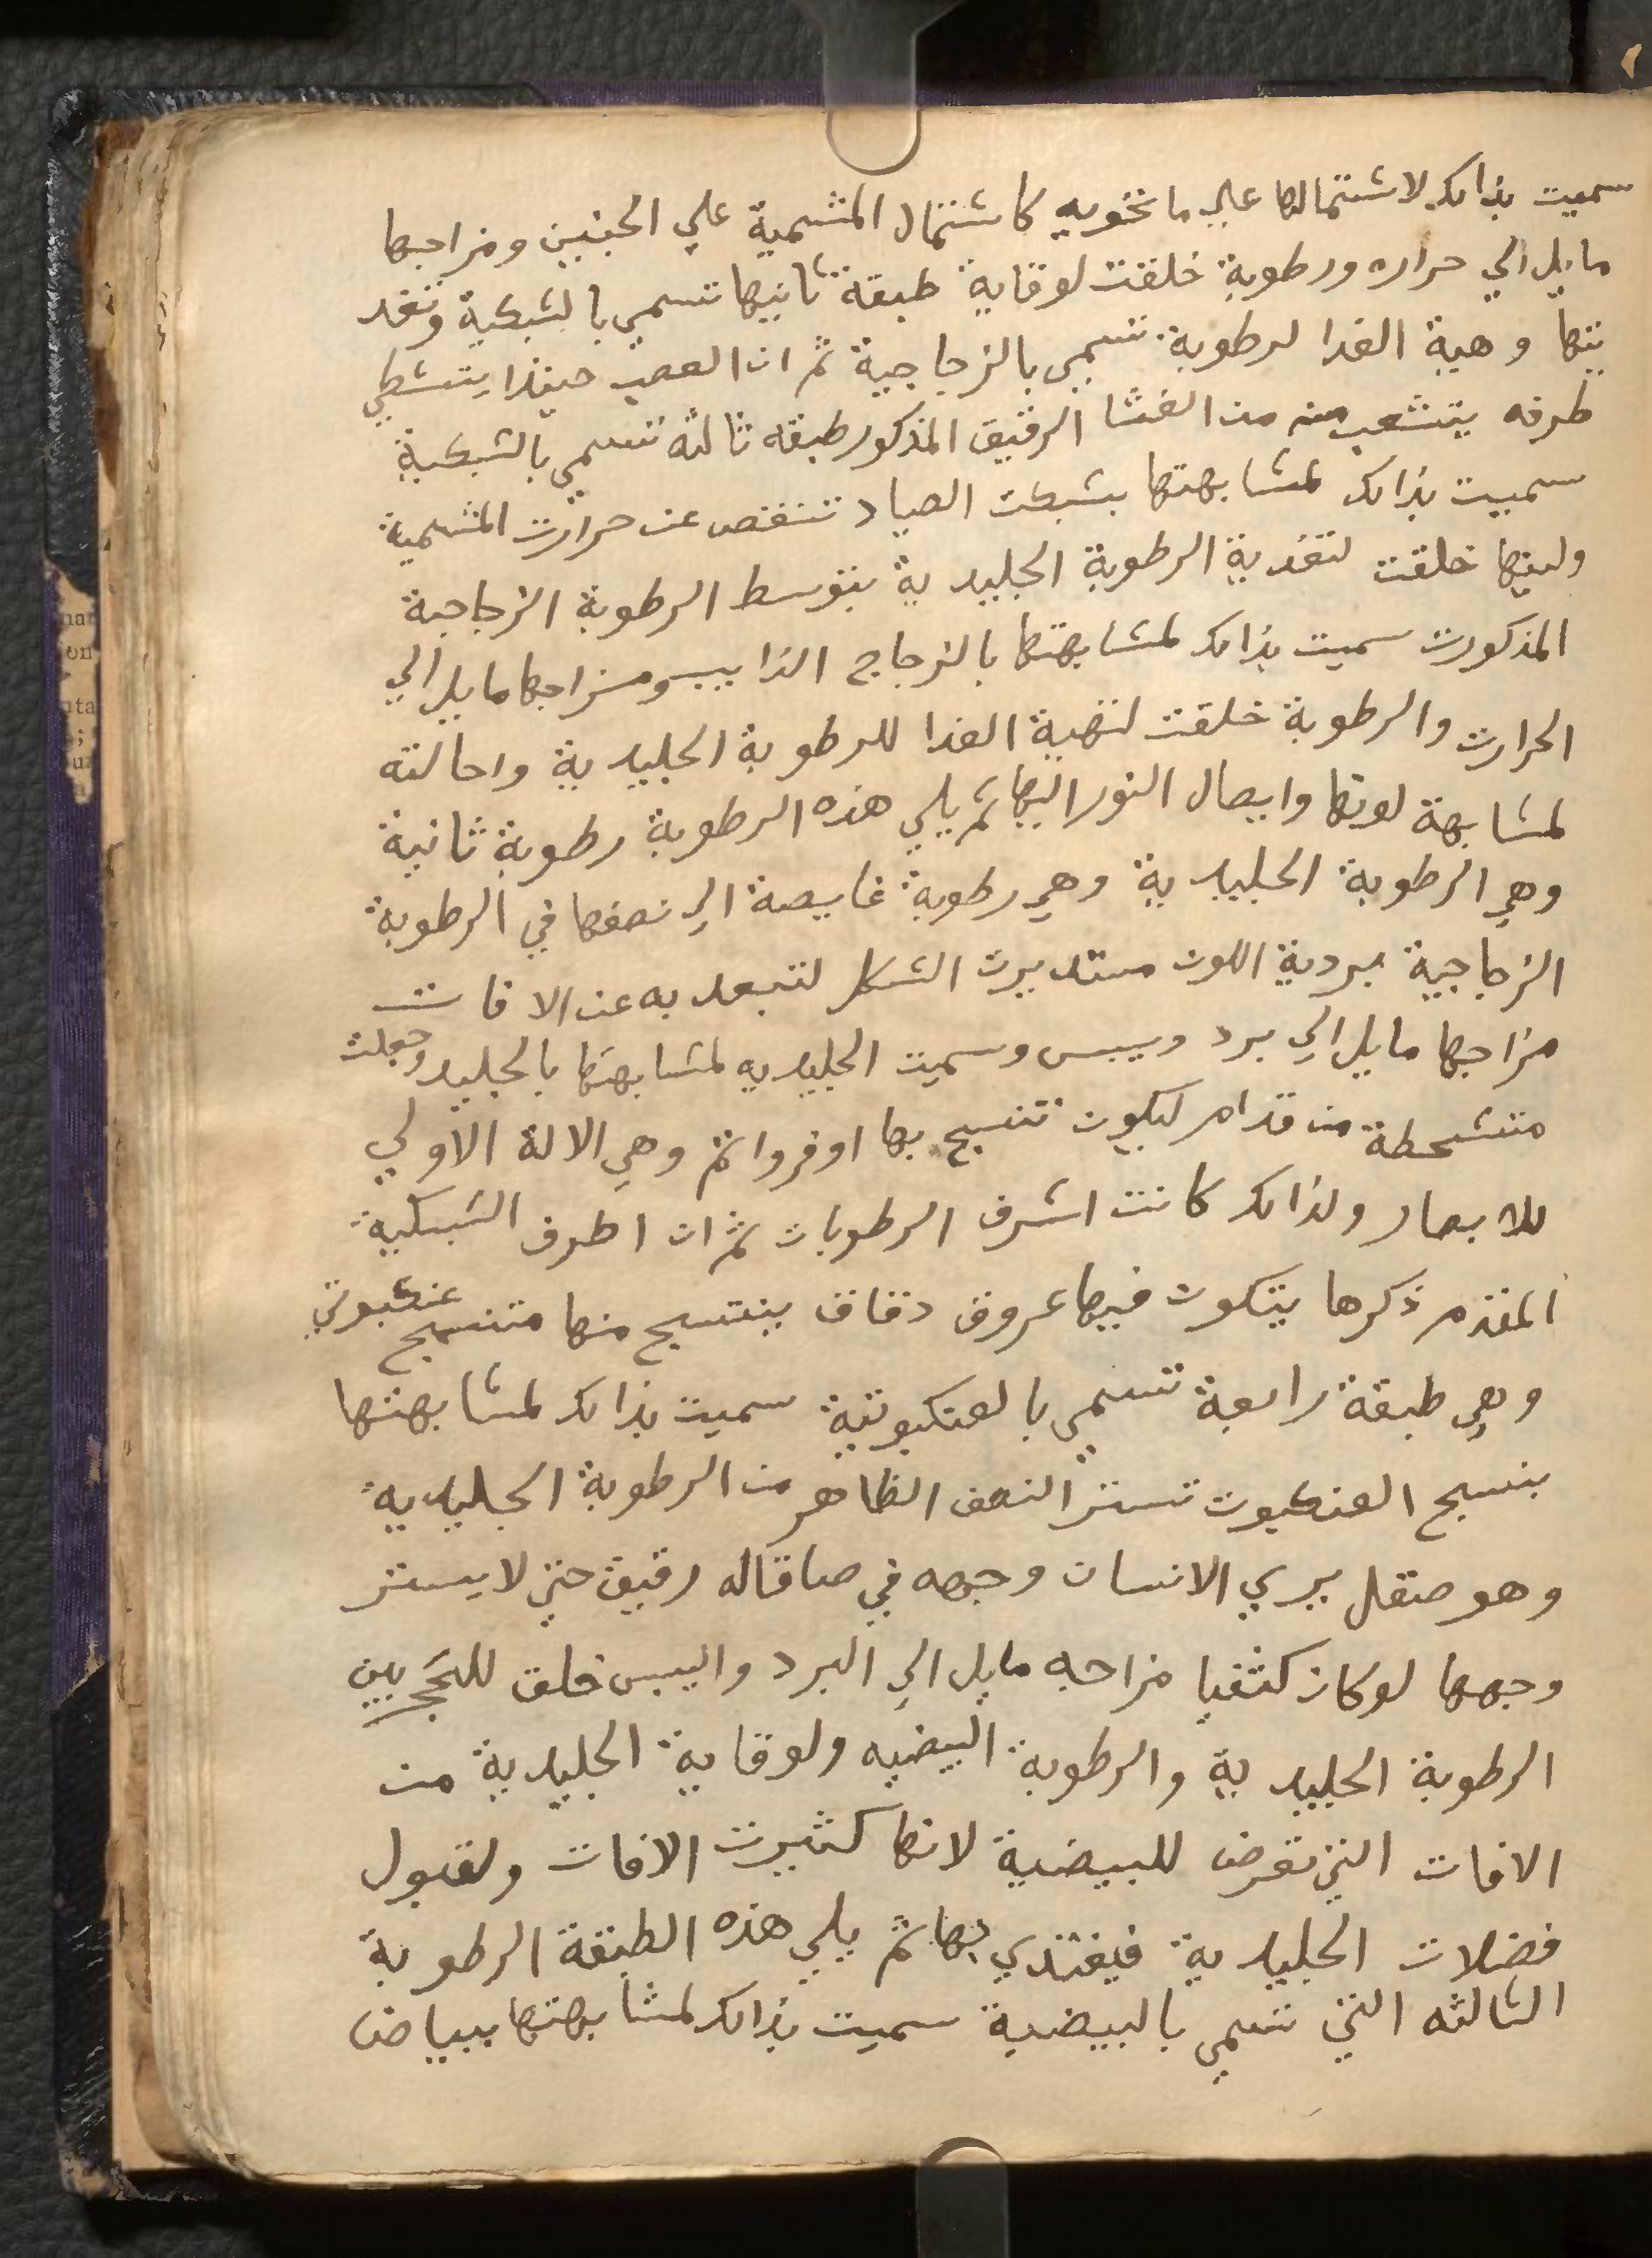 سميت بذالك لاشتمالها علي ما تحويه كاشتمال المشمية علي الجنين ومزاجها
مايل الي حراره ورطوبة خلقت لوقاية طبقة ثانيها تسمي بالشبكية وتغد
يتها وهية الغدا لرطوبة تسمي بالزجاجية ثم ان العصب حينذا يتشطي
طرفه يتشعب منه من الغشا الرقيق المذكور طبقه ثالثه تسمي بالشبكية
سمييت بذالك لمشابهتها بشبكت الصياد تنقص عن حرارت المشمية
ولينها خلقت لتغدية الرطوبة الجليدية بتوسط الرطوبة الزجاجية
المذكورت سميت بذالك لمشابهتها بالزجاج الذايب ومزاجها مايل الي
الحرارت والرطوبة خلقت لتهية الغدا للرطوبة الجليدية واحالته
لمشابهة لونها وايصال النور اليها ثم يلي هذه الرطوبة رطوبة ثانية
وهي الرطوبة الجليدية وهي رطوبة غايصة الي نصفها في الرطوبة
الزجاجية بردية اللون مستديرت الشكل لتبعد به عن الافات
مزاجها مايل الي برد ويبس وسميت الجليديه لمشابهتها بالجليد وجعلت
متشحطة من قدام ليكون تنسبح بها اوفر واتم وهي الالة الاولي
للابصار ولذالك كانت اشرف الرطوبات ثم ان اطرف الشبكية
المقدم ذكرها يتكون فيها عروق دقاق ينتسج منها متنسج عنكبوتي
وهي طبقة رابعة تسمي بالعنكبوتية سميت بذالك لمشابهتها
بنسج العنكبوت تستر النصف الظاهر من الرطوبة الجليدية
وهو صقل يري الانسان وجهه في صاقاله رقيق حتي لا يستر
وجهها لو كان كثفيا مزاجه مايل الي البرد واليبس خلق للحجز بين
الرطوبة الجليدية والرطوبة البيضيه ولوقاية الجليدية من
الافات التي تعرض للبيضية لانها كثيرت الافات ولقبول
فضلات الجليدية فيغتذي بها ثم يلي هذه الطبقة الرطوبة
الثالثه التي تسمي بالبيضية سميت بذالك لمشابهتها ببياض